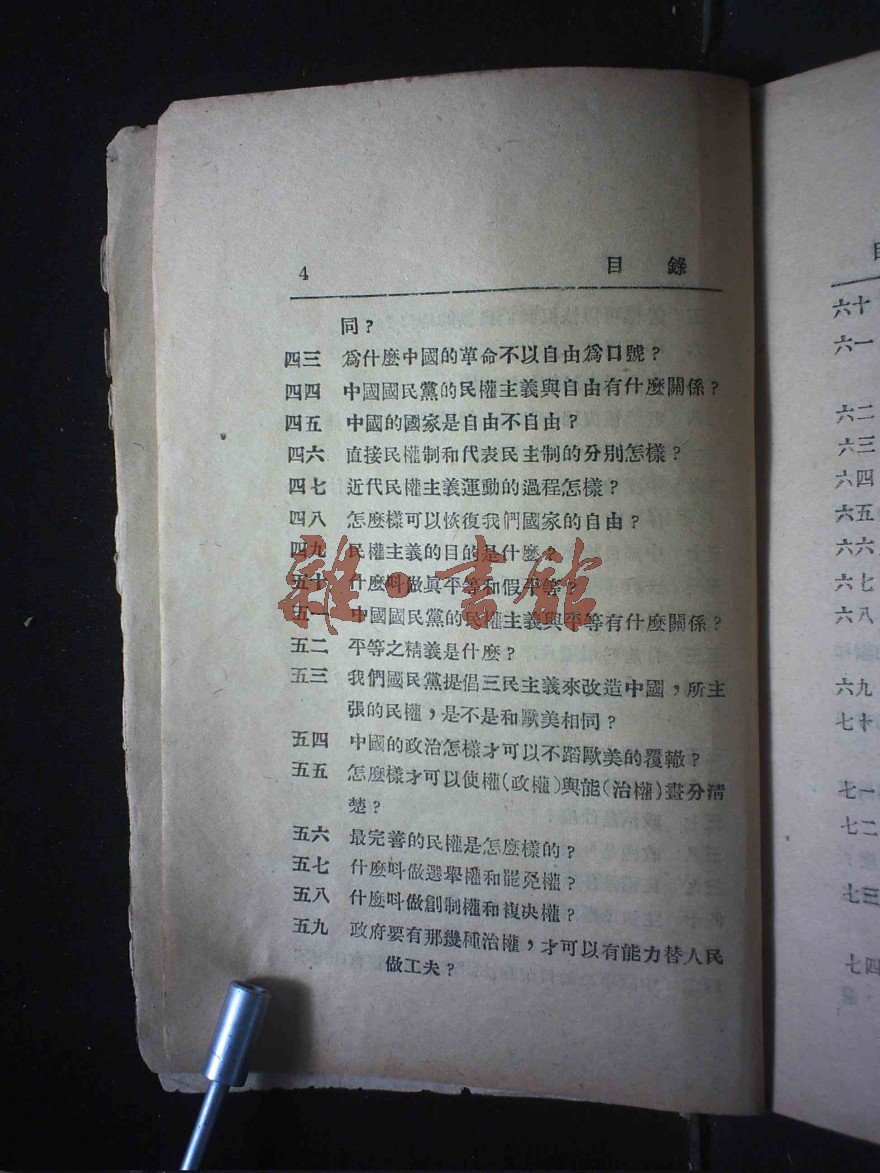 4 目錄
同？
四三 為什麼中國的革命不以自由為口號？
四四 中國國民黨的民權主義與自由有什麼關係？
四五 中國的國家是自由不自由？
四六 直接民權制和代表民主制的分別怎樣？
四七 近代民權主義運動的過程怎樣？
四八 怎麼樣可以恢復我們國家的自由？
四九 民權主義的目的是什麼？
五十 什麼呌做眞平等和假平等？
五一 中國國民黨的民權主義與平等有什麼關係？
五二 平等之精義是什麼？
五三 我們國民黨提倡三民主義來改造中國，所主
張的民權，是不是和歐美相同？
五四 中國的政治怎樣才可以不蹈歐美的覆轍？
五五 怎麼樣才可以使權（政權）與能（治權）畫分清
楚？
五六 最完善的民權是怎麼樣的？
五七 什麼呌做選舉權和罷免權？
五八 什麼呌做創制權和複决權？
五九 政府要有那幾種治權，才可以有能力替人民
做工夫？
雜·書館
六十
六一
六二
六三
六四
六五
六六
六七
六八
六九
七十
七一
七二
七三
七四